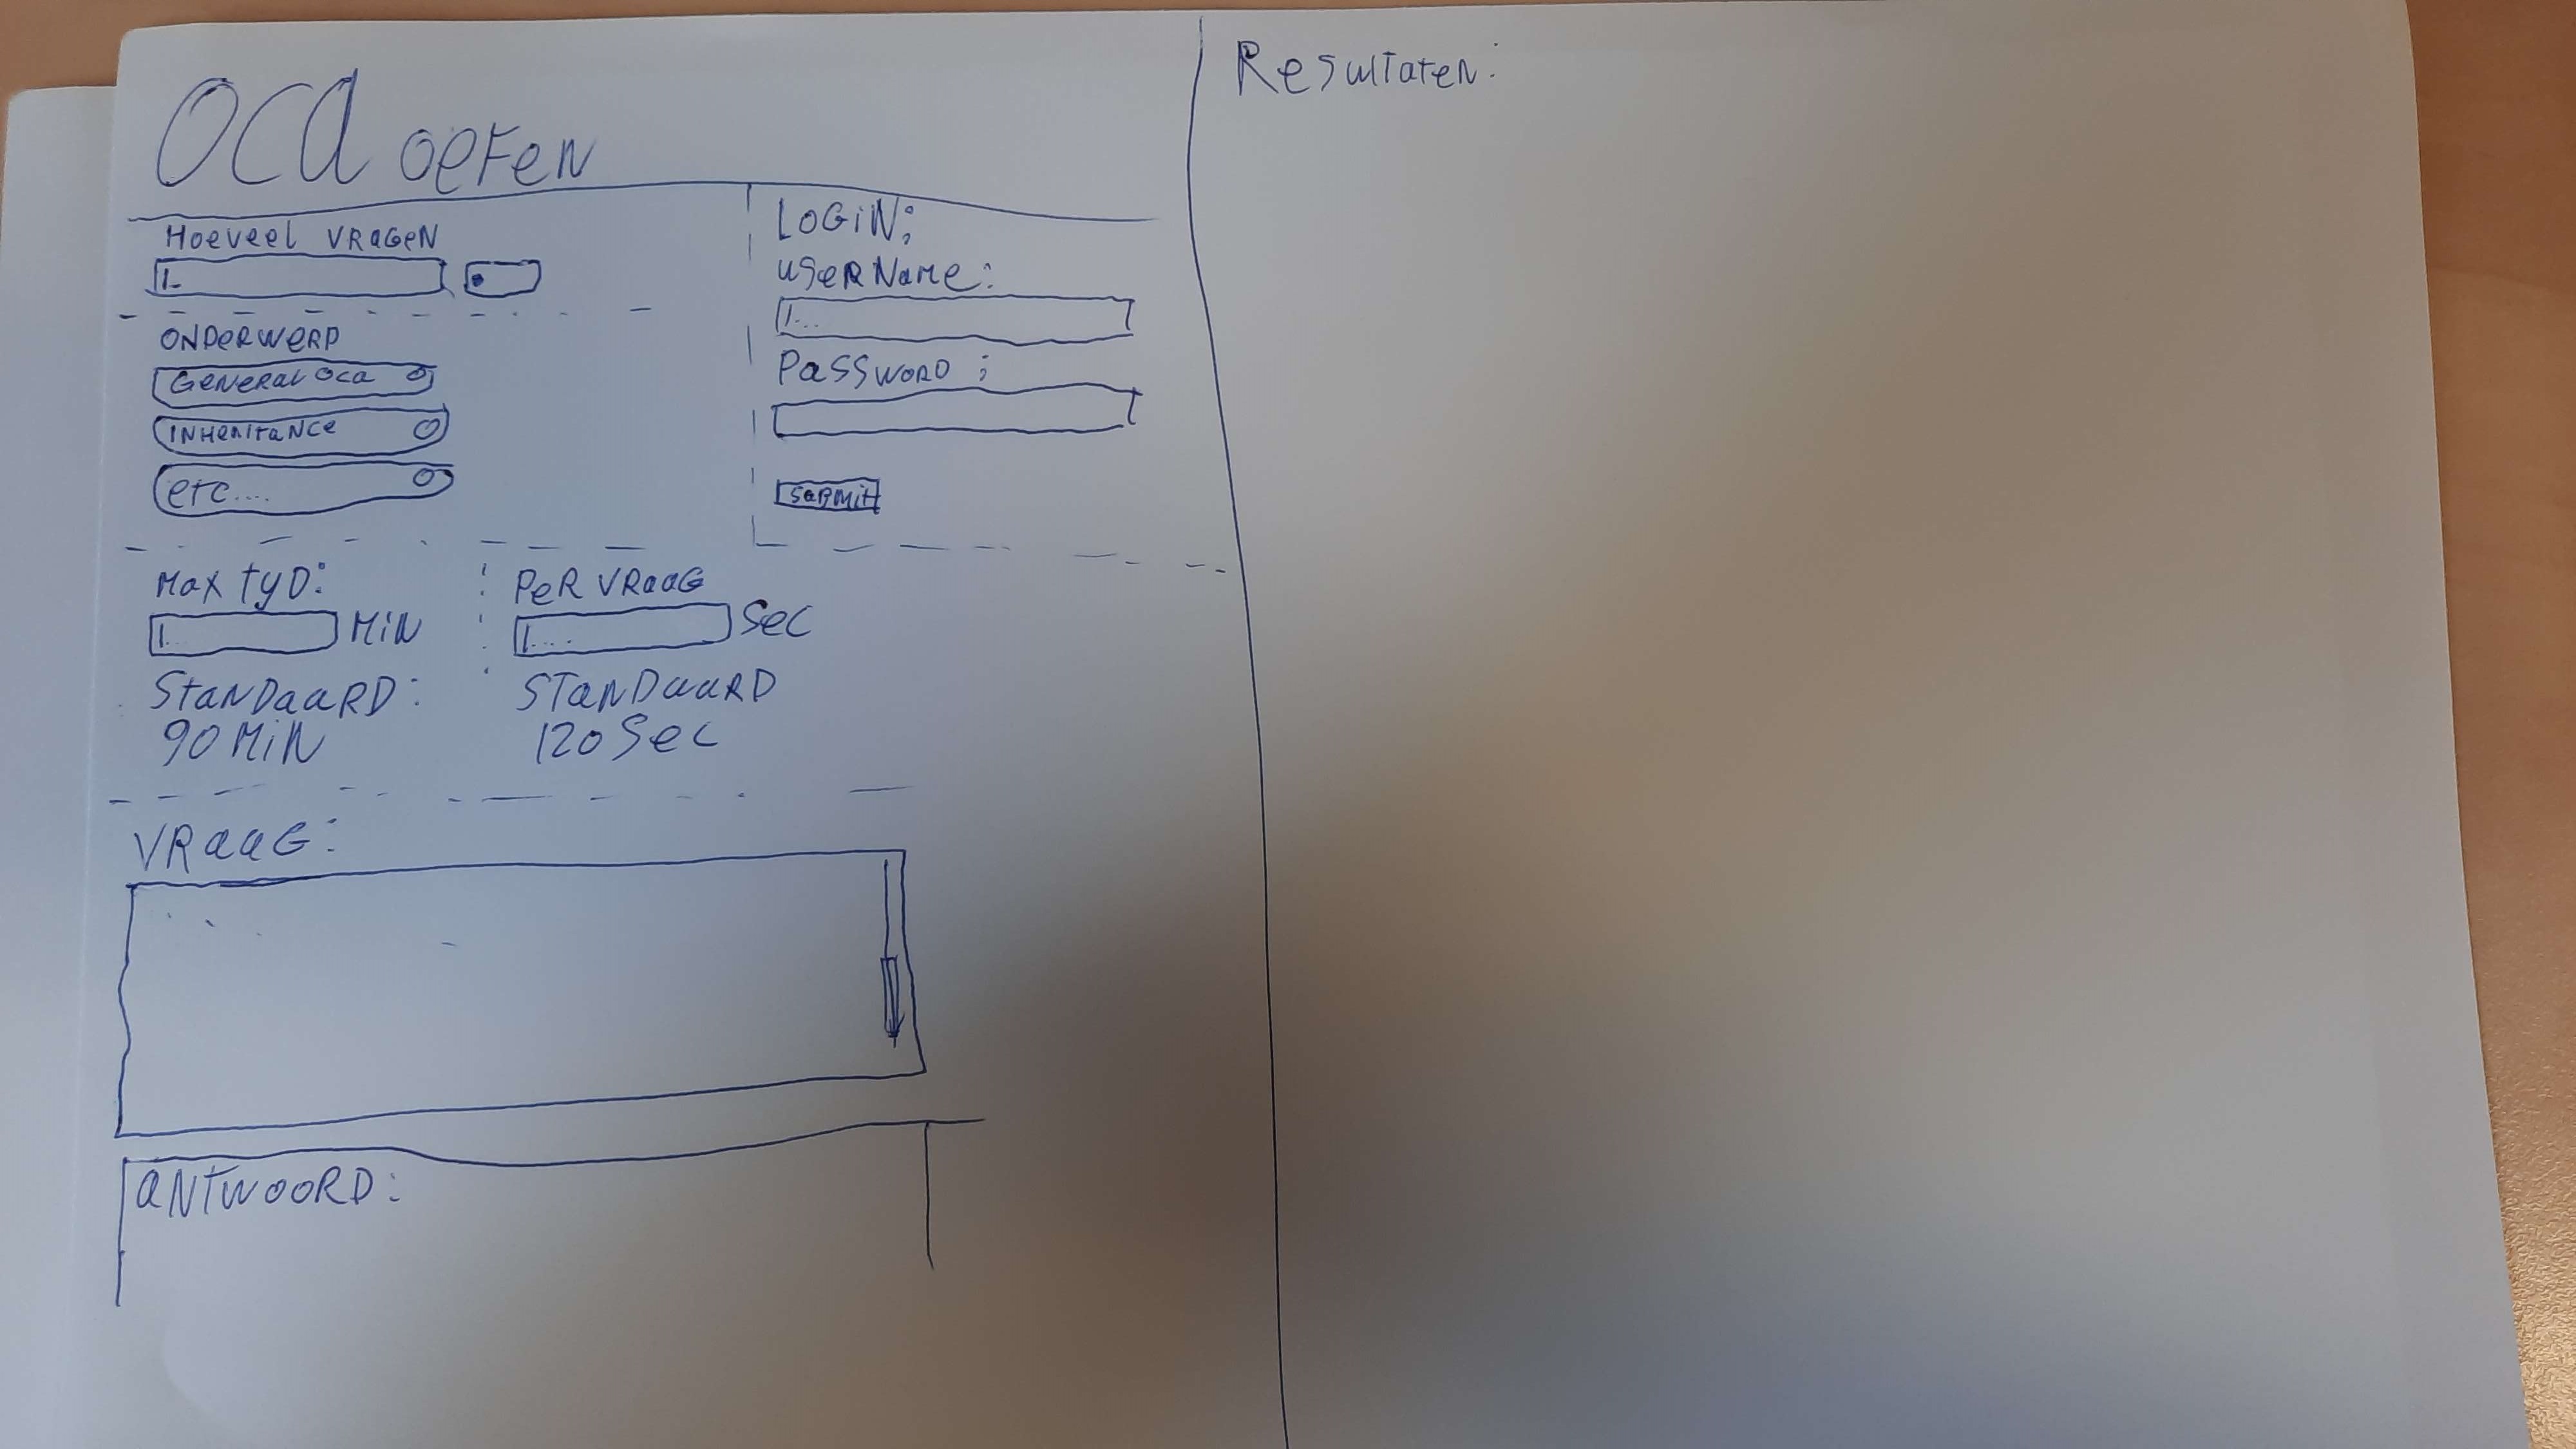 OCA OEFEN
HOEVEEL VRAGEN
ONDERWERP
GENERAL OCA
INHERITANCE
etc....
LOGIN:
USERNAME:
PASSWORD:
SUBMIT
MAX TYD:
MIN
STANDAARD:
90 MIN
PER VRAAG
SEC
STANDAARD
120 SEC
VRAAG:
ANTWOORD:
Resultaten: